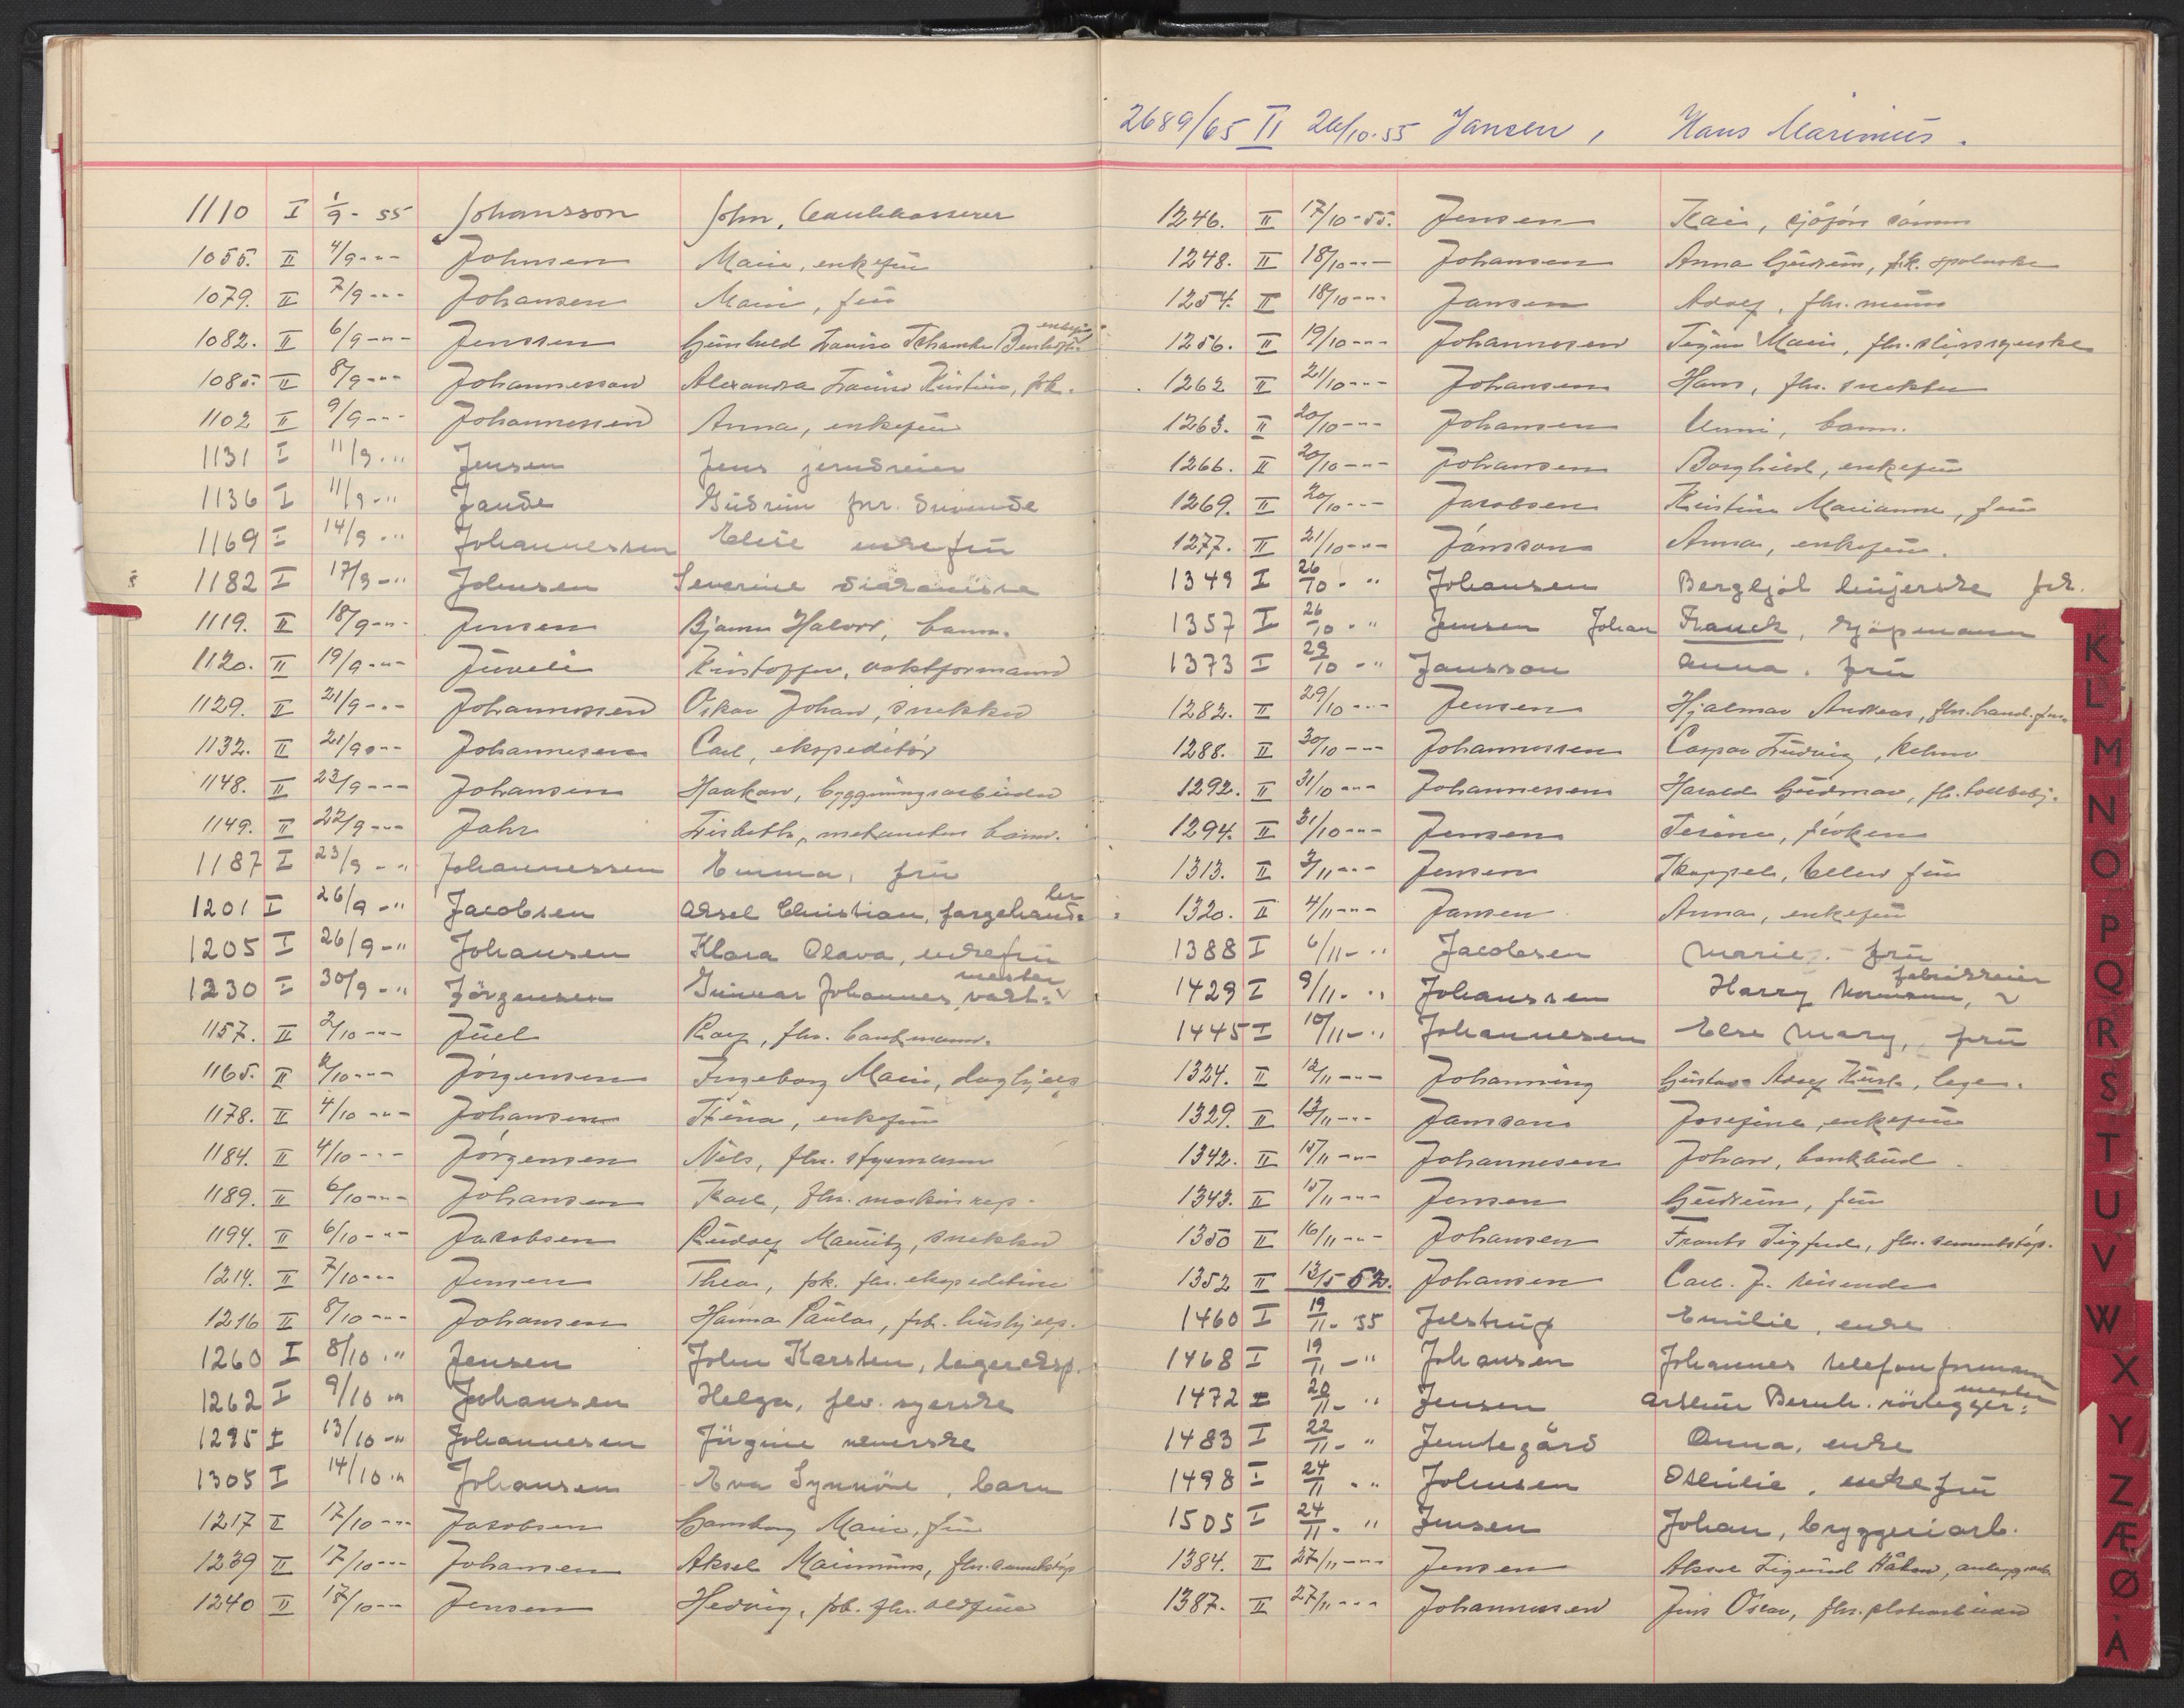 1110 I 1/9 - 55 Johansson John, bankkasserer
1055. II 4/9 -"- Johnsen Marie, enkefru
1079. II 7/9 -"- Johansen Marie, fru
1082. II 6/9 -"- Jenssen Gunhild Lovise Schanke enkefru
1085. II 8/9 -"- Johannessen Alexandra Lovise Kristine, frk.
1102 II 9/9 -"- Johannessen Anna, enkefru
1131 I 11/9 -" Jensen Jens jerndreier
1136 I 11/9 -" Jande Gudrun
1169 I 14/9 -" Johannessen Elise enkefru
1182 I 17/9 -" Johnsen Severine diakonisse
1119. II 18/9 -"- Jensen Bjarne Halvor, barn.
1120. II 19/9 -"- Juveli Kristoffer, vaktformann
1129. II 21/9 -"- Johannessen Oskar Johan, snekker
1132. II 21/9 -"- Johannesen Carl, ekspeditør
1148. II 23/9 -"- Johansen Haakon, bygningsarbeider
1149. II 22/9 -"- Jahr Lisbeth, barn.
1187 I 23/9 -" Johannessen Emma, fru
1201 I 26/9 -" Jacobsen Aksel Christian, fargehand= ler
1205 I 26/9 -" Johansen Klara Olava, enkefru
1230 I 30/9 -" Jörgensen Gunnar Johannes, vakt= mester
1157. II 2/10 -"- Juel Roey, fhv. bankmann.
1165. II 2/10 -"- Jörgensen Ingeborg Marie, daghjelp
1178. II 4/10 -"- Johansen Stina, enkefru
1184. II 4/10 -"- Jörgensen Nils, fhv. styrmann
1189. II 6/10 -"- Johansen Karl, fhv. maskinrep.
1194. II 6/10 -"- Jacobsen Rudolf Mauritz, snekker
1214. II 7/10 -"- Jensen Thea, frk. fhv. ekspeditrise
1216 II 8/10 -"- Johansen Hanna Paula, frk. hushjelp.
1260 I 8/10 -" Jensen John Karsten, lagereksp.
1262 I 9/10 -" Johansen Helga, syerske
1295 I 13/10 -" Johannesen Jörgine veverske
1305 I 14/10 -" Johansen Eva Synnöve, barn
1217 II 17/10 -"- Jacobsen Marie, fru
1239 II 17/10 -"- Johansen Aksel Marinius, fhv. sementstøp
1240 II 18/10 -"- Jensen Hedvig, frk. fhv. oldfrue
2689/65 II 26/10-55 Jansen, Hans Marinius.
1246. II 17/10 - 55. Jensen Kai,
1248. II 18/10 -"- Johansen Anna Gudrun, frk. spolerske
1254. II 18/10 -"- Jansen Adolf, fhv. murer
1256. II 19/10 -"- Johannessen Signe Marie, fhv. slipssyerske
1262 II 21/10 -"- Johansen Hans, fhv. snekker
1263. II 20/10 -"- Johansen Unni, barn.
1266. II 20/10 -"- Johansen Borghild, enkefru
1269. II 20/10 -"- Jacobsen Kristine Marianne, fru
1277. II 21/10 -"- Jónsson Anna, enkefru.
1349 I 26/10 - " Johansen Bergljot linjerske frk.
1357 I 26/10 - " Jensen Johan Franck, kjöpmann
1373 I 29/10 - " Jansson Anna. fru
1282. II 29/10 -"- Jensen Hjalmar Andreas,
1288. II 30/10 -"- Johannessen Caspar Ludvig, kelner
1292. II 31/10 -"- Johannessen Harald Gudmar,
1294. II 31/10 -"- Jensen Serine, frøken
1313. II 3/11 -"- Jensen Kappel, Ellen fru
1320. II 4/11 -"- Jansen Anna, enkefru
1388 I 6/11 - " Jacobsen Marie. fru
1429 I 9/11 - " Johanssen Harry Normann, fabrikkeier
1445 I 10/11 - " Johannesen Else Mary, fru
1324. II 12/11 -"- Johanning Gustav Adolf, lege.
1329. II 13/11 -"- Jamsans Josefine, enkefru
1342. II 15/11 -"- Johannesen Johan, bankbud
1343. II 15/11 -"- Jensen Gudrun, fru
1350 II 16/11 -"- Johansen Frants Sigfred, fhv. sementstøp.
1352 II 13/5 52. Johansen Carl. J. reisende
1460 I 19/11 - 55 Jelstrup Emilie, enke
1468 I 19/11 - " Johansen Johannes telefonformann
1472 I 20/11 - " Jensen Arthur Bernh. rörlegger= mester
1483 I 22/11 - " Jemtegård Anna, enke
1498 I 24/11 - " Johnsen Othilie, enkefru
1505 I 24/11 - " Jensen Johan, bryggeriarb.
1384. II 27/11 -"- Jensen Aksel Sigurd Håkon,
1387. II 27/11 -"- Johannessen Jens Oscar, fhv. platearbeider
K
L
M
N
O
P
Q
R
S
T
U
V
W
X
Y
Z
Æ
Ø
Å